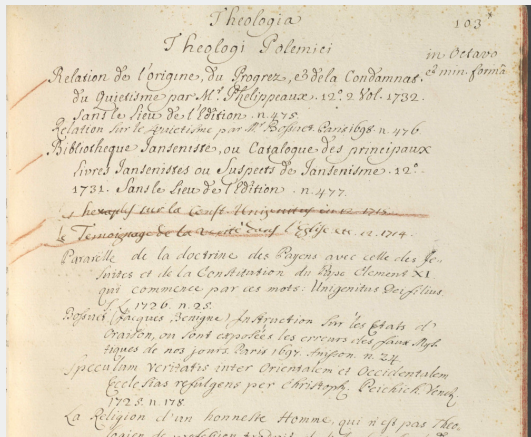 Theologia
103
Theologi Polemici
in Octavo
et min. formâ
Relation de l'origine, du Progrez, & de la Condamnat.
du Quietisme par Mr. Phelippeaux. 12°. 2 Vol. 1732.
sans le Lieu de l'Edition. n. 475.
Relation sur le Quietisme par Mr. Bossuet. Paris 1698. n. 476.
Bibliotheque Janseniste, ou Catalogue des principaux
livres Jansenistes ou Suspects de Jansenisme. 12°.
1731. Sans le Lieu de l'Edition. n. 477.
hexaples sur la Const. Unigenitus en 12.
le Temoignage de la verité dans l'Eglise etc. 12. 1714.
Pararelle de la doctrine des Payens avec celle des Je-
suites et de la Constitution du Pape Clement XI
qui commence par ces mots: Unigenitus Dei filius.
1726. n. 25.
Bossuet (Jacques Benigne) Instruction sur les Etats d'
Oraison, ou sont exposées les erreurs des faux Mys-
tiques de nos jours. Paris 1697. Anisson. n. 24.
Speculum veritatis inter Orientalem et Occidentalem
Ecclesias refulgens per Christoph. Peichich. Venet.
1725. n. 178.
La Religion d'un honneste Homme, qui n'est pas Theo-
logien de profession